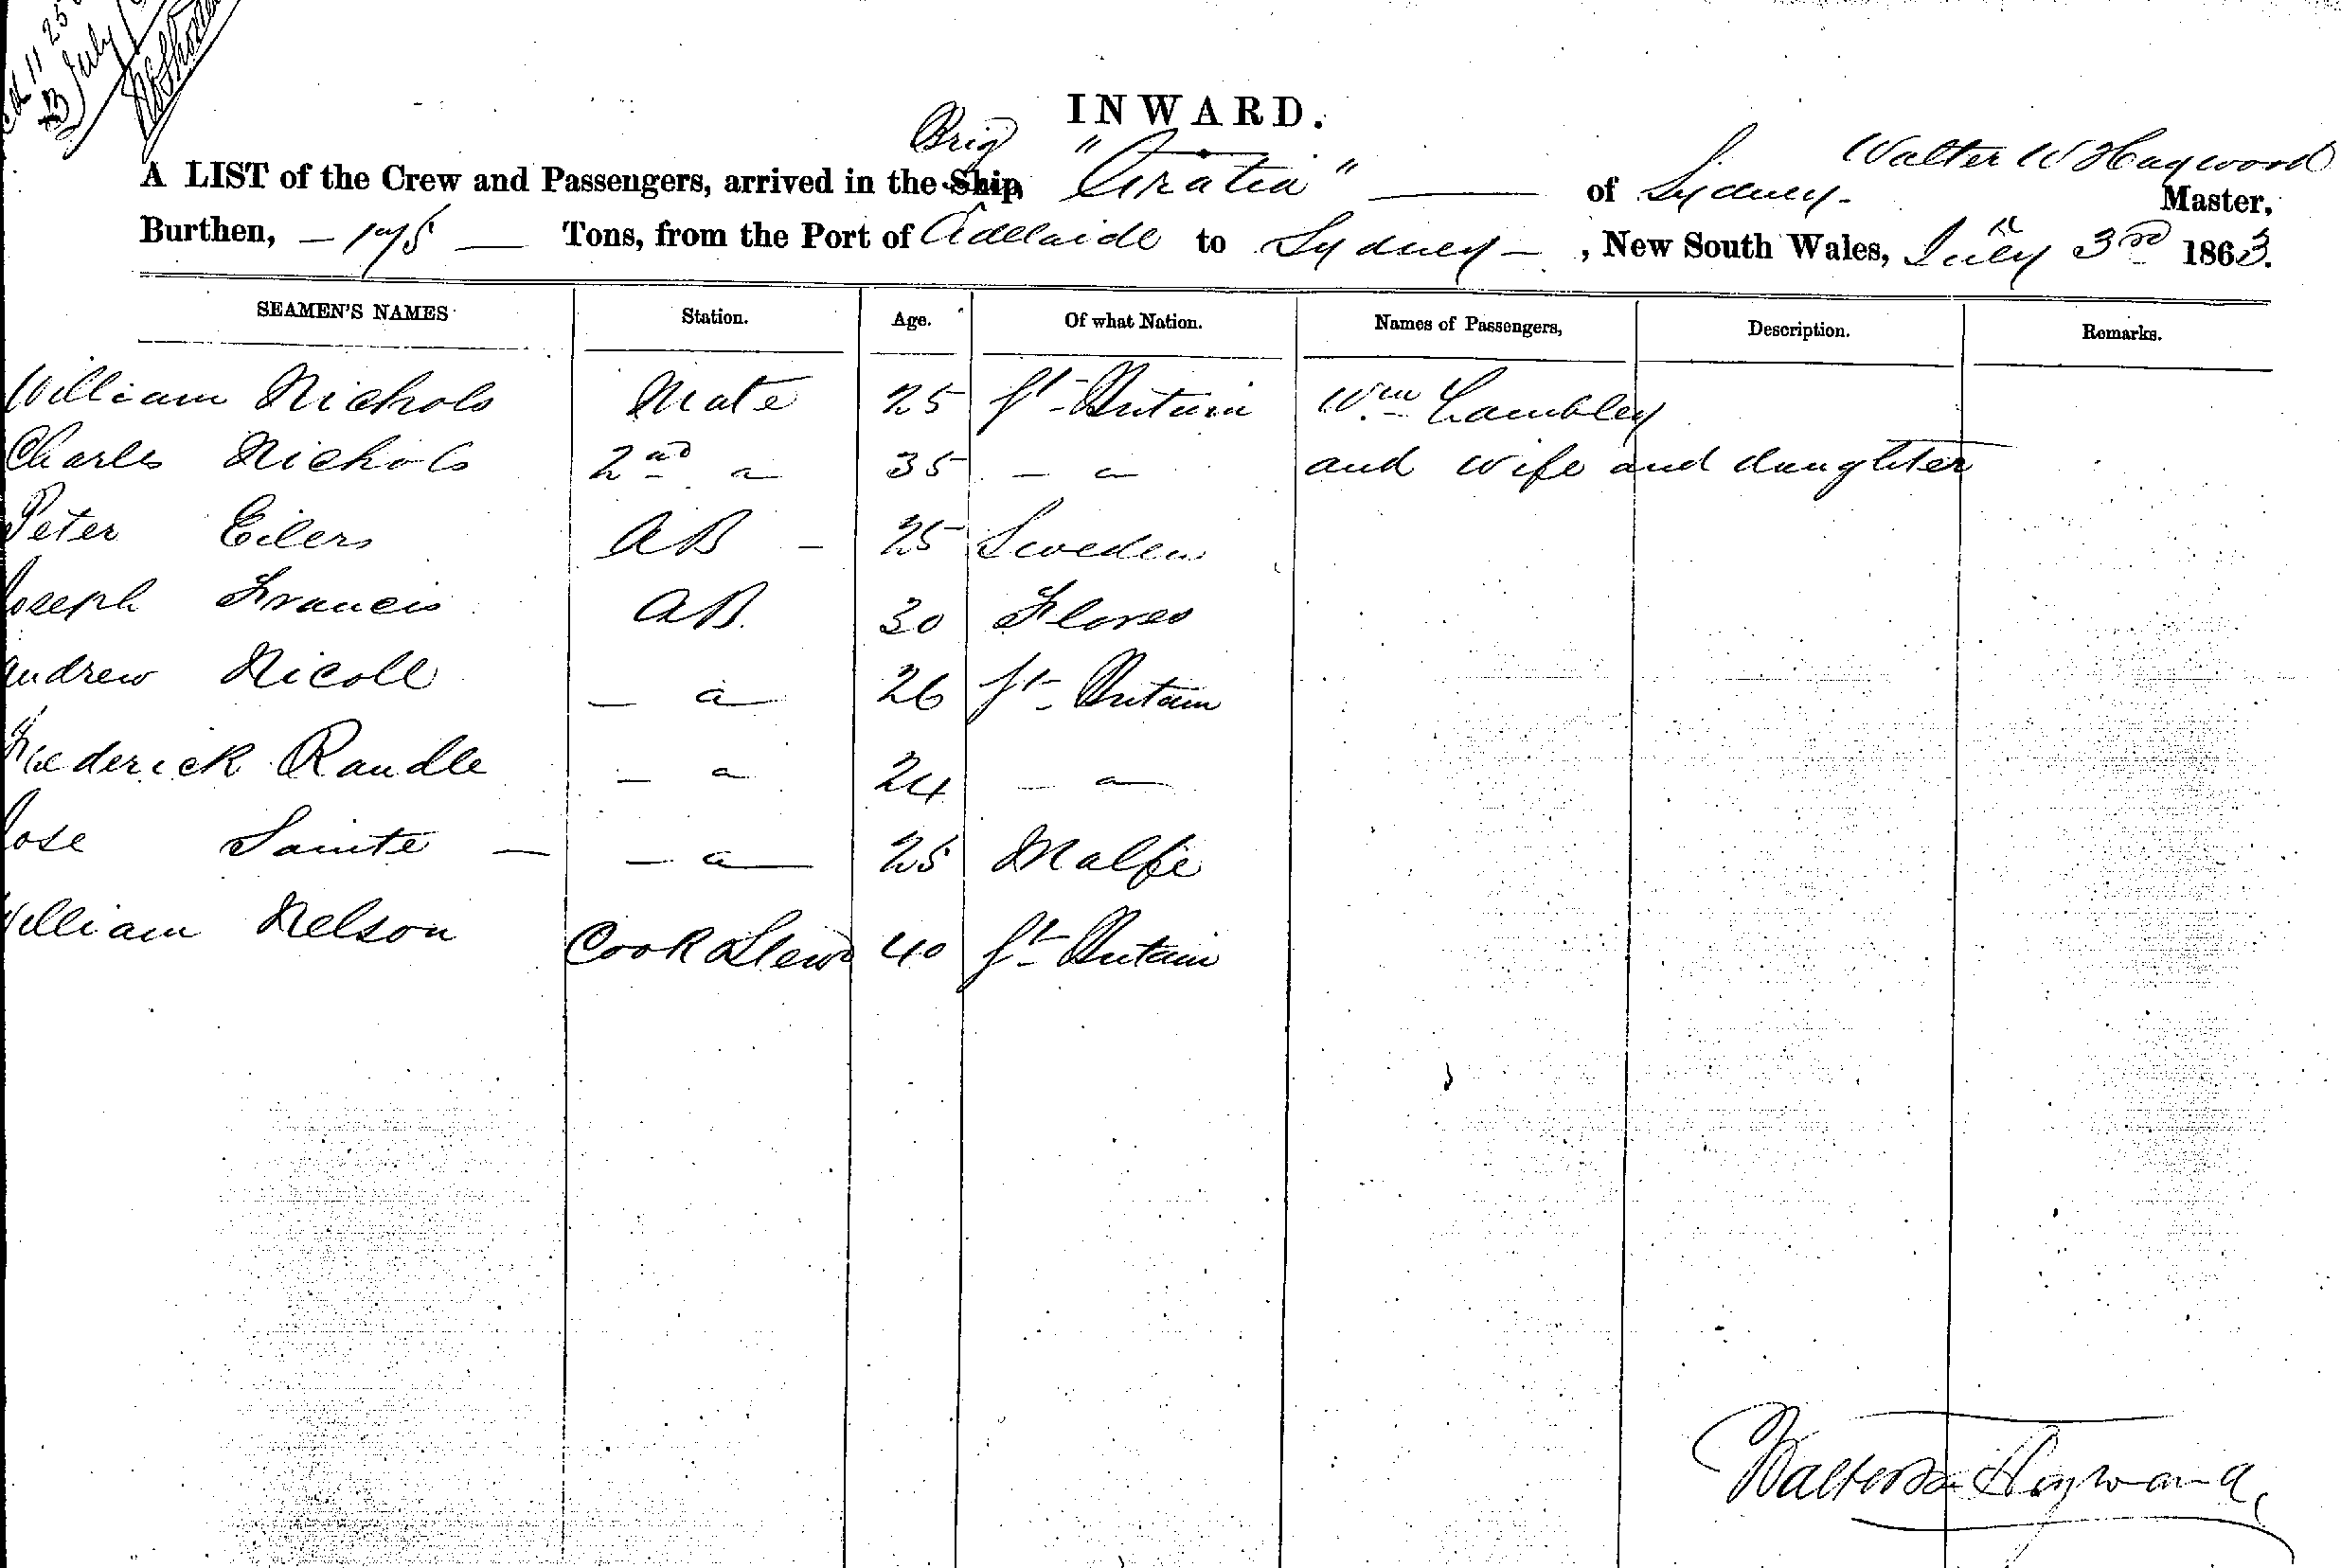 25
July
INWARD.
Brig
Walter W Hayward
A LIST of the Crew and Passengers, arrived in the Ship, "Gratia" — of Sydney - Master,
Burthen, - 175 - Tons, from the Port of Adelaide to Sydney - , New South Wales, July 3rd 1863.
SEAMEN'S NAMES Station. Age. Of what Nation. Names of Passengers, Description. Remarks.
William Nichols Mate 25 Gt Britain Wm Lambley
Charles Nichols 2nd " 35 - " and wife and daughter
Peter Eilers AB - 25 Sweden
Joseph Francis AB. 30 Flores
Andrew Nicoll - " 26 Gt Britain
Frederick Randle - " 24 - "
Jose Sainte - - " 25
William Nelson Cook & Stewd 40 Gt Britain
Walter W Hayward